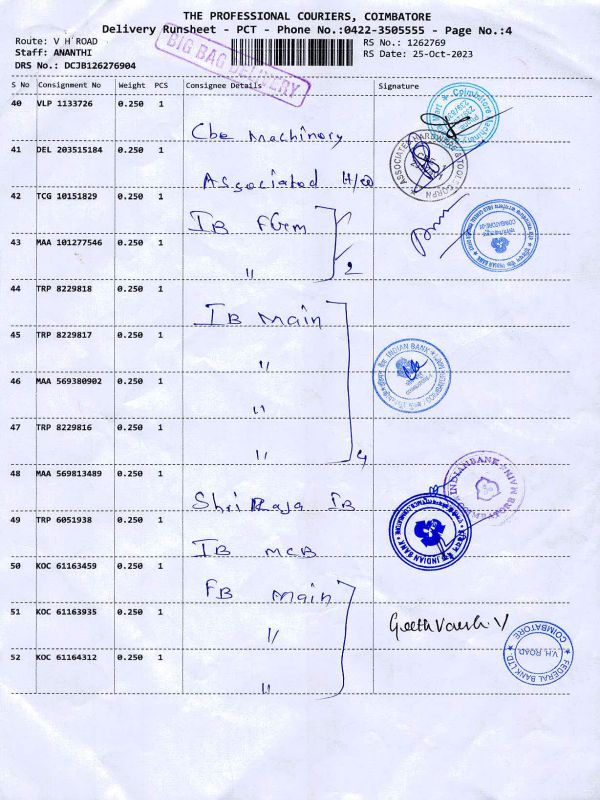 THE PROFESSIONAL COURIERS, COIMBATORE
Delivery Runsheet - PCT - Phone No.:0422-3505555 - Page No.:4
Route: V H ROAD
RS No.: 1262769
Staff: ANANTHI
RS Date: 25-Oct-2023
DRS No.: DCJB126276904
BIG BAG DELIVERY
S No Consignment No Weight PCS Consignee Details Signature
40 VLP 1133726 0.250 1
Cbe Machinery
41 DEL 203515184 0.250 1
Associated H/w
42 TCG 10151829 0.250 1
IB
43 MAA 101277546 0.250 1
" 2
44 TRP 8229818 0.250 1
IB Main
45 TRP 8229817 0.250 1
"
46 MAA 569380902 0.250 1
"
47 TRP 8229816 0.250 1
" 4
48 MAA 569813489 0.250 1
Shri Raja IB
49 TRP 6051938 0.250 1
IB MCB
50 KOC 61163459 0.250 1
FB Main
51 KOC 61163935 0.250 1
"
52 KOC 61164312 0.250 1
"
ASSOCIATED HARDWARE & TOOL CORPN
INDIAN BANK
INDIAN BANK
INDIAN BANK
FEDERAL BANK LTD.
COIMBATORE
V.H. ROAD